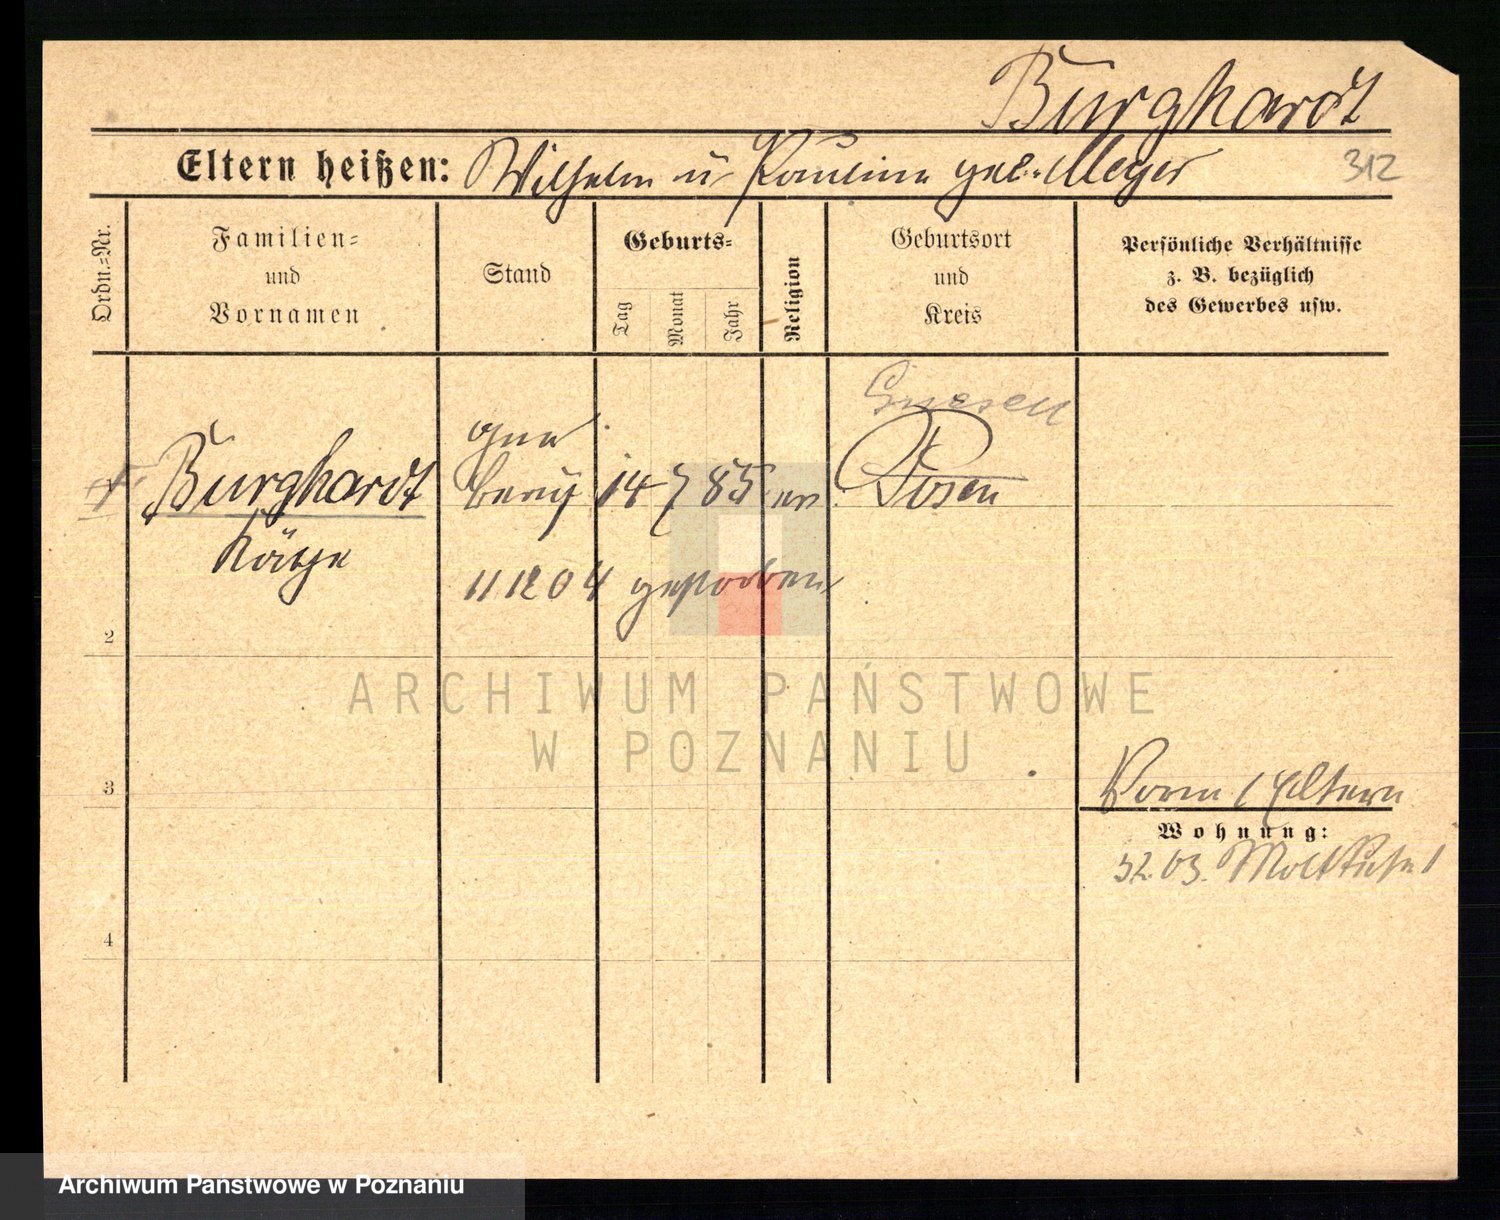 Burghardt
312
Eltern heißen: Wilhelm u Pauline geb. Meyer
Ordn.-Nr.
Familien-
und
Vornamen
Stand
Geburts-
Tag
Monat
Jahr
Religion
Geburtsort
und
Kreis
Persönliche Verhältnisse
z. B. bezüglich
des Gewerbes usw.
Gnesen
Burghardt
Käthe
14 7 85 ev
Posen
11 12 04 gestorben
2
3
4
Eltern
Wohnung:
ARCHIWUM PAŃSTWOWE
W POZNANIU
Archiwum Państwowe w Poznaniu